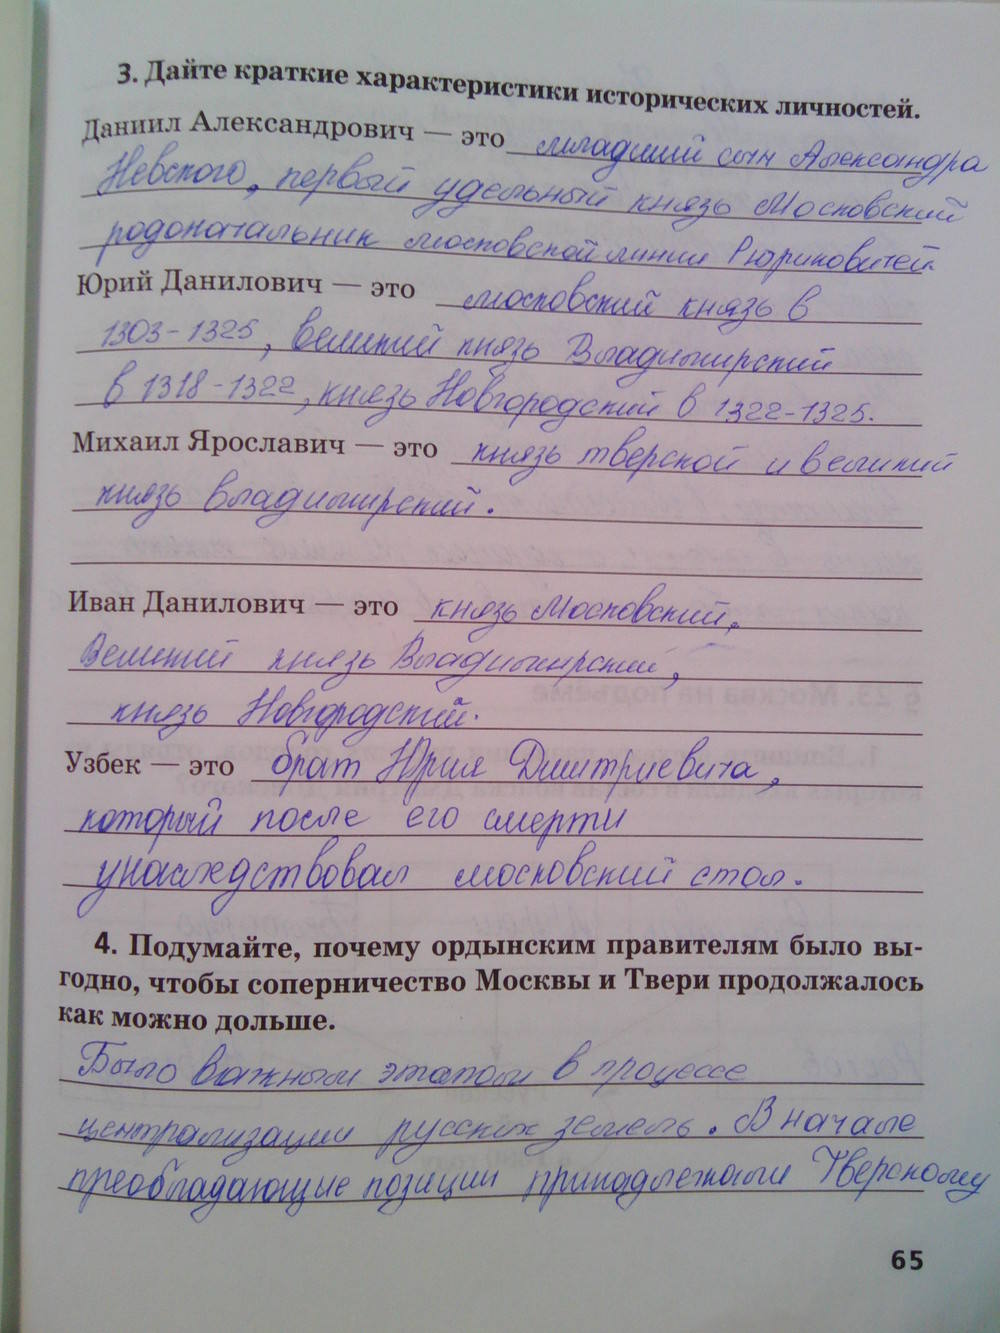 3. Дайте краткие характеристики исторических личностей.
Даниил Александрович — это младший сын Александра
Невского, первый удельный князь Московский
родоначальник московской линии Рюриковичей
Юрий Данилович — это московский князь в
1303-1325, великий князь Владимирский
в 1318-1322, князь Новгородский в 1322-1325.
Михаил Ярославич — это князь тверской и великий
князь владимирский.
Иван Данилович — это князь Московский,
Великий князь Владимирский,
князь Новгородский.
Узбек — это брат Юрия Дмитриевича,
который после его смерти
унаследствовал московский стол.
4. Подумайте, почему ордынским правителям было вы-
годно, чтобы соперничество Москвы и Твери продолжалось
как можно дольше.
Было важным этапом в процессе
централизации русских земель. В начале
преобладающие позиции принадлежали Тверскому
65